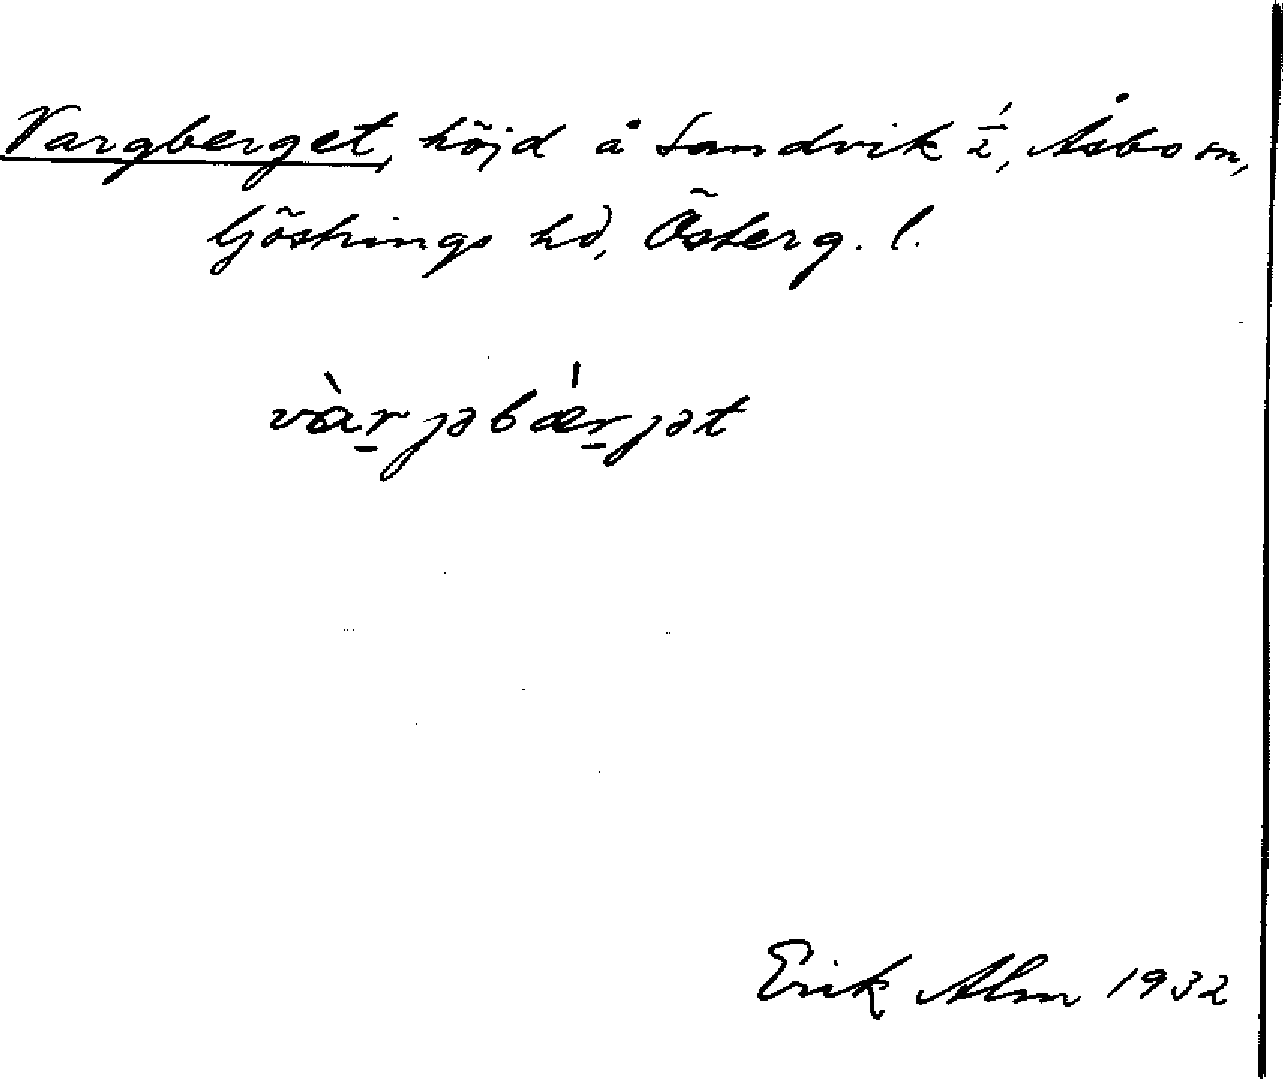 Vargberget, höjd å Sandvik 1/2, Åsbo sn,
Göstrings hd, Österg. l.
vàr̠jəbǽr̠jət
Erik Alm 1932